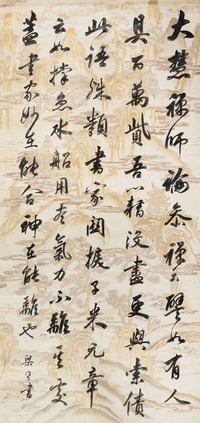 大慧禪師論參禪云譬如有人
具百萬貲吾籍沒盡更與索債
此語殊類書家關捩子米元章
云如撐急水船用氣力不離處
蓋書家妙在能合神在能離也
梁書